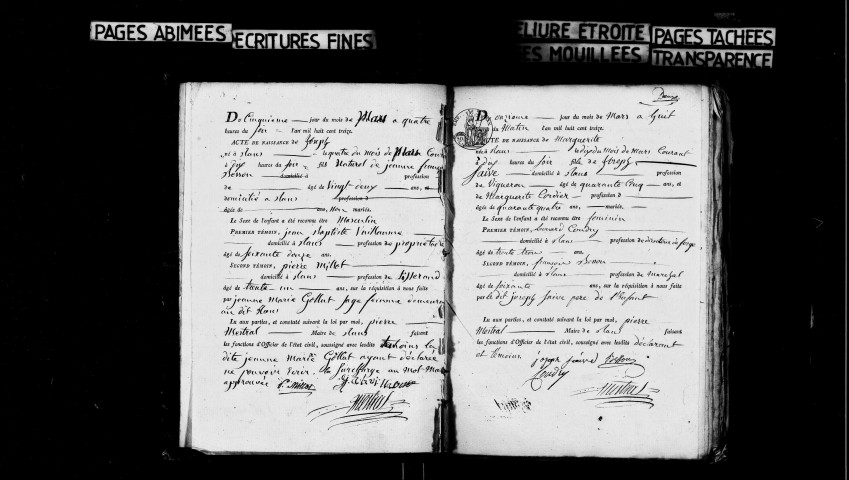 PAGES ABIMEES
ECRITURES FINES
ELIURE ETROITE
PAGES TACHEES
ES MOUILLEES
TRANSPARENCE
Du Cinquieme jour du mois de Mars a quatre
heures du soir l'an mil huit cent treize.
ACTE DE NAISSANCE de Joseph
né à le quatre du mois de Mars Cour
à dix heures du soir fils Naturel de jeanne
domicilié à profession
de âgé de vingt deux ans, et
domicilié a profession d
âgée de ans, Non mariés.
Le Sexe de l'enfant a été reconnu être Masculin
PREMIER TÉMOIN, jean Baptiste Vuillaume
domicilié à profession de propriétaire
âgé de soixante douze ans.
SECOND TÉMOIN, pierre Millot
domicilié à profession de Tisserand
âgé de trente un ans, sur la réquisition à nous faite
par jeanne Marie Gollut Sage femme demeurant
au dit
Lu aux parties, et constaté suivant la loi par moi, pierre
Mestral Maire de faisant
les fonctions d'Officier de l'état civil, soussigné avec lesdits témoins la
dite jeanne Marie Gollut ayant déclaré
ne pouvoir écrir. la Surcharge au mot Mars
approuvée
Mestral
Douze
Du onzieme jour du mois de Mars a huit
du Matin l'an mil huit cent treize.
ACTE DE NAISSANCE de Marguerite
née à le dix du mois de Mars Courant
à dix heures du soir fille de Joseph
faivre domicilié à profession
de Vigneron âgé de quarante cinq ans, et
de Marguerite Cordier profession d
âgée de quarante quatre ans, mariés.
Le Sexe de l'enfant a été reconnu être feminin
PREMIER TÉMOIN, Coudry
domicilié à profession de directeur de forge
âgé de trente trois ans.
SECOND TÉMOIN, francois
domicilié à profession de marechal
âgé de soixante ans, sur la réquisition à nous faite
par le dit joseph faivre pere de l'Enfant
Lu aux parties, et constaté suivant la loi par moi, pierre
Mestral Maire de faisant
les fonctions d'Officier de l'état civil, soussigné avec lesdits déclarant
et temoins. joseph faivre
Coudry
Mestral